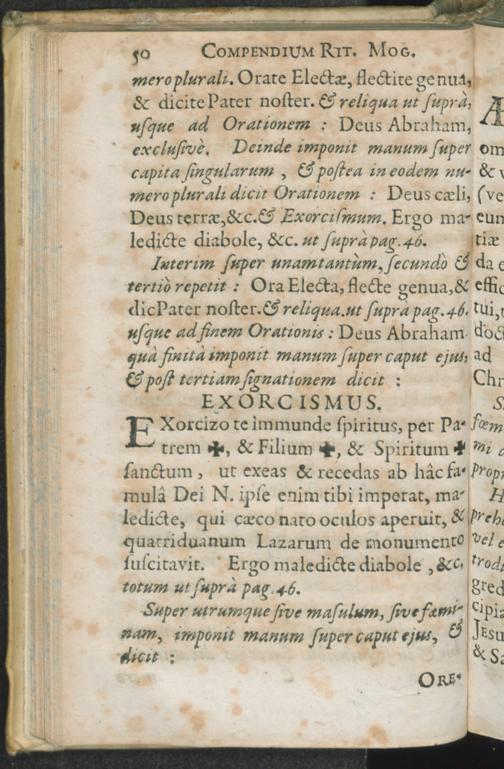 50 COMPENDIUM RIT. MOG.
mero plurali. Orate Electæ, flectite genua,
& dicite Pater noſter. & reliqua ut ſuprà,
uſque ad Orationem : Deus Abraham,
excluſivè. Deinde imponit manum ſuper
capita ſingularum , & poſtea in eodem nu-
mero plurali dicit Orationem : Deus cæli,
Deus terræ,&c.& Exorciſmum. Ergo ma-
ledicte diabole, &c. ut ſuprà pag. 46.
Interim ſuper unam tantùm, ſecundò &
tertiò repetit : Ora Electa, flecte genua,&
dic Pater noſter.& reliqua.ut ſupra pag. 46.
uſque ad finem Orationis : Deus Abraham
quâ finitâ imponit manum ſuper caput ejus,
& poſt tertiam ſignationem dicit :
EXORCISMUS.
EXorcizo te immunde ſpiritus, per Pa-
trem ✠, & Filium ✠, & Spiritum ✠
ſanctum , ut exeas & recedas ab hâc fa-
mulâ Dei N. ipſe enim tibi imperat, ma-
ledicte, qui cæco nato oculos aperuit, &
quatriduanum Lazarum de monumento
ſuſcitavit. Ergo maledicte diabole , &c.
totum ut ſuprà pag. 46.
Super utrumque ſive maſulum, ſive fœmi-
nam, imponit manum ſuper caput ejus, &
dicit :
ORE-
Æ
om
& v
(ve
eun
tiæ
da e
effic
tui,
doct
ad
Chr
S
fœm
mi
propr
H
prehe
vel e
trod
gred
cipia
JESU
& Sa